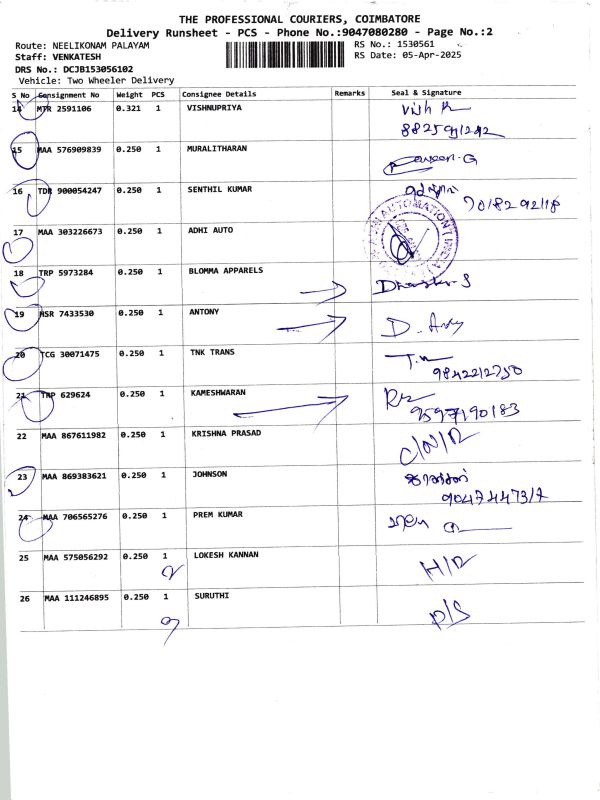 THE PROFESSIONAL COURIERS, COIMBATORE
Delivery Runsheet - PCS - Phone No.:9047080280 - Page No.:2
Route: NEELIKONAM PALAYAM RS No.: 1530561
Staff: VENKATESH RS Date: 05-Apr-2025
DRS No.: DCJB153056102
Vehicle: Two Wheeler Delivery
S No Consignment No Weight PCS Consignee Details Remarks Seal & Signature
14 MTR 2591106 0.321 1 VISHNUPRIYA
15 MAA 576909839 0.250 1 MURALITHARAN
16 TDR 900054247 0.250 1 SENTHIL KUMAR
17 MAA 303226673 0.250 1 ADHI AUTO
18 TRP 5973284 0.250 1 BLOMMA APPARELS
19 MSR 7433530 0.250 1 ANTONY
20 TCG 30071475 0.250 1 TNK TRANS
9842212750
21 TRP 629624 0.250 1 KAMESHWARAN
9597190183
22 MAA 867611982 0.250 1 KRISHNA PRASAD C/N/R
23 MAA 869383621 0.250 1 JOHNSON
9047447317
24 MAA 706565276 0.250 1 PREM KUMAR
25 MAA 575056292 0.250 1 LOKESH KANNAN H/R
26 MAA 111246895 0.250 1 SURUTHI P/S